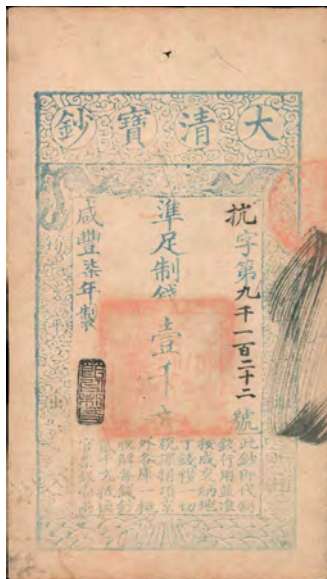 大清寶鈔
抗字第九千一百二十二號
準足制錢壹千文
咸豐柒年製
此鈔即代制
錢行用並准
按成交納地
丁錢糧一切
稅課捐項京
外各庫一概
收解每錢鈔